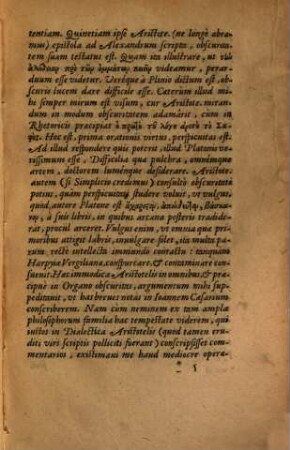 tentiam. Quinetiam ipse Aristote. (ne longè abea-
mus) epistola ad Alexandrum scripta, obscurita-
tem suam testatus est. Quam ita illustrare, ut
πρὸ τῶν ὀμμάτων videamur, per ar-
duum esse videtur. Veréque à Plinio dictum est, ob-
scuris lucem dare difficile esse. Caeterùm illud mi-
hi semper mirum est visum, cur Aristote. miran-
dum in modum obscuritatem adamârit, cum in
Rhetoricis praecipiat
Hoc est, prima orationis virtus, perspicuitas est:
Ad id respondere quis poterit, illud Platonis ve-
rissimum esse. Difficilia quae pulchra, omnémque
artem, doctorem lumémque desiderare. Aristote.
autem (si Simplicio credimus) consultò obscuritate
potiùs, quàm perspicuitati studere voluit, ut vulgus,
quod, autore Platone est
à suis libris, in quibus arcana posteris tradide-
rat, procul arceret. Vulgus enim, ut omnia quae pri-
moribus attigit labris, invulgare solet, ita multa pa-
rum velit intellecta immundis contactu: tanquam
Harpyia Vergiliana, conspurcare, & contaminare con-
sueuit. Haec immodica Aristotelis in omnibus, & prae-
cipuè in Organo obscuritas, argumentum mihi sup-
peditauit, ut has breues notas in Ioannem Caesarium
conscriberem. Nam cum neminem ex tam ampla
philosophorum familia hac tempestate viderem, qui
iustos in Dialectica Aristotelis (quod tamen eru-
diti viri scriptis polliciti fuerant) conscripsisset com-
mentarios, existimaui me haud mediocre opera-